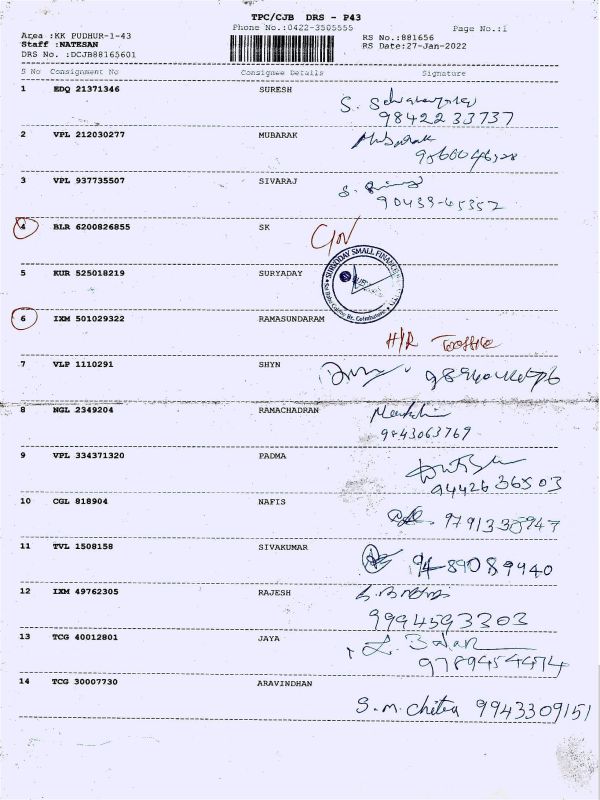 TPC/CJB DRS - P43
Phone No.:0422-3505555
Page No.:1
Area :KK PUDHUR-1-43
RS No.:881656
Staff :NATESAN
RS Date:27-Jan-2022
DRS No. :DCJB88165601
S No Consignment No Consignee Details Signature
1 EDQ 21371346 SURESH
98422 33737
2 VPL 212030277 MUBARAK Mubarak
3 VPL 937735507 SIVARAJ
90439-45352
4 BLR 6200826855 SK
SURYODAY SMALL FINANCE
5 KUR 525018219 SURYADAY
6 IXM 501029322 RAMASUNDARAM
H/R
7 VLP 1110291 SHYN
8 NGL 2349204 RAMACHADRAN
9843063769
9 VPL 334371320 PADMA
9442636503
10 CGL 818904 NAFIS
11 TVL 1508158 SIVAKUMAR
94-89089940
12 IXM 49762305 RAJESH
9994593303
13 TCG 40012801 JAYA
9789454474
14 TCG 30007730 ARAVINDHAN
S.M. Chitra 9943309151